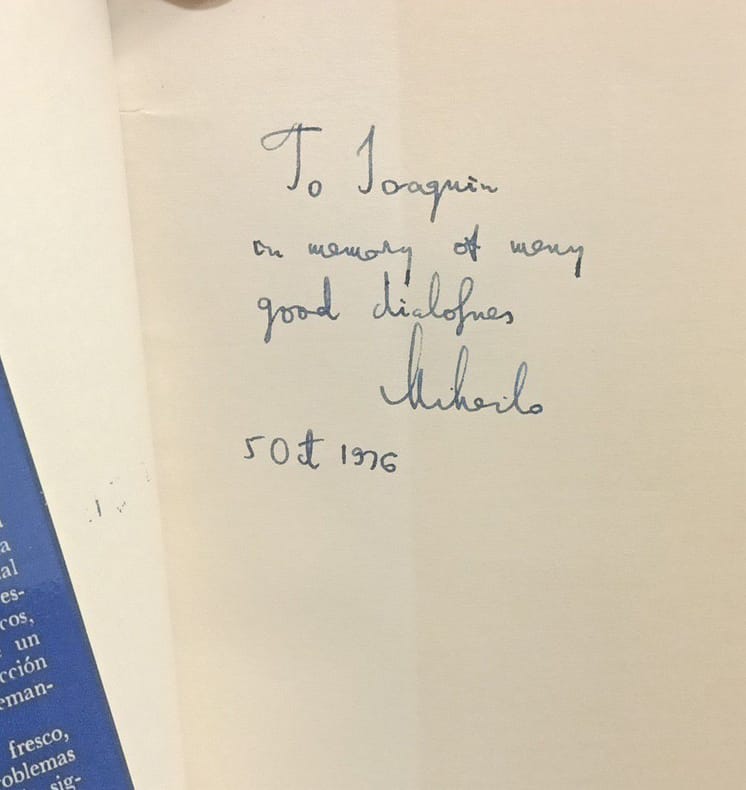 To Joaquin
in memory of many
good dialogues
Mihailo
5 Oct 1976
a
al
es-
cos,
un
cción
eman-
fresco,
oblemas
sig-